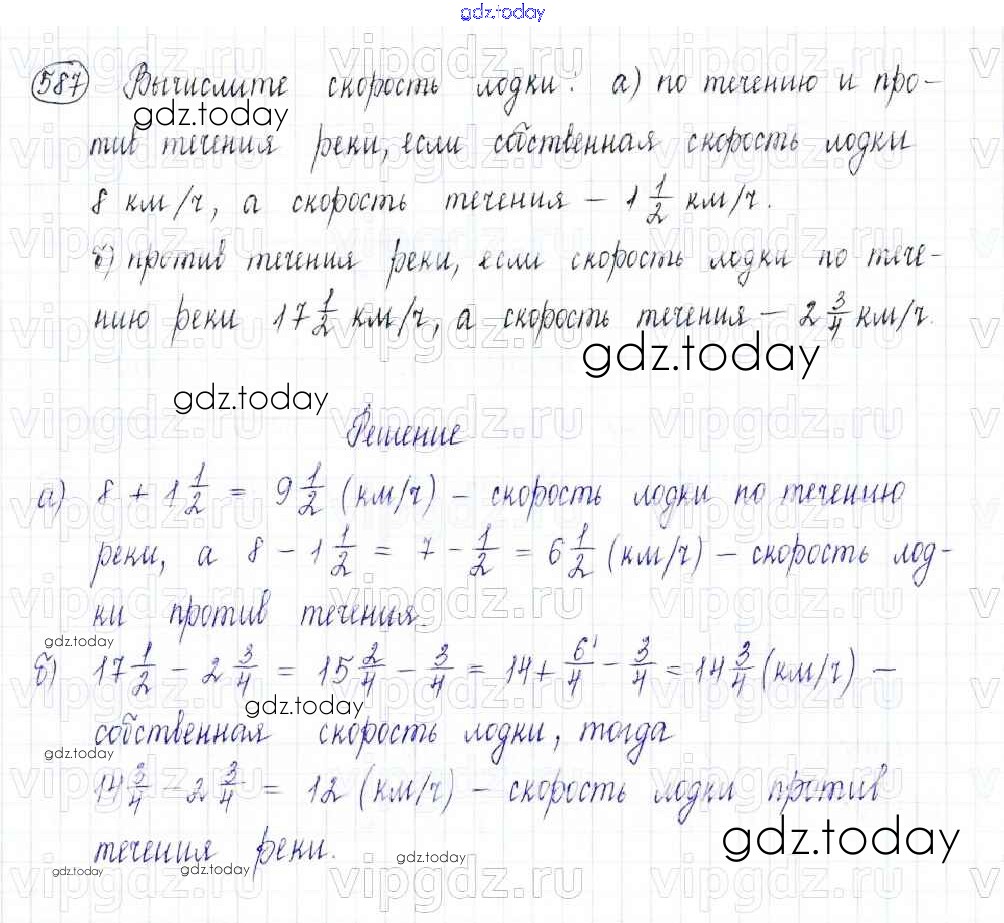 gdz.today
587 Вычислите скорость лодки: а) по течению и про-
gdz.today
тив течения реки, если собственная скорость лодки
8 км/ч, а скорость течения – 1 1/2 км/ч.
б) против течения реки, если скорость лодки по тече-
нию реки 17 1/2 км/ч, а скорость течения – 2 3/4 км/ч.
gdz.today
gdz.today
Решение
а) 8 + 1 1/2 = 9 1/2 (км/ч) – скорость лодки по течению
реки, а 8 – 1 1/2 = 7 – 1/2 = 6 1/2 (км/ч) – скорость лод-
ки против течения.
gdz.today
б) 17 1/2 – 2 3/4 = 15 2/4 – 3/4 = 14 + 6/4 – 3/4 = 14 3/4 (км/ч) –
gdz.today
собственная скорость лодки, тогда
gdz.today
14 3/4 – 2 3/4 = 12 (км/ч) – скорость лодки против
gdz.today
течения реки.
gdz.today
gdz.today
vipgdz.ru